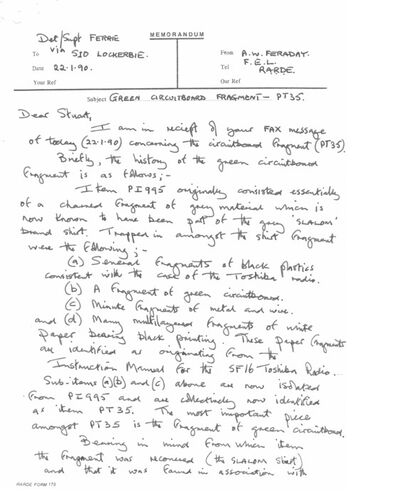 MEMORANDUM
Det/Supt FERRIE
To via SIO LOCKERBIE.
From A.W. FERADAY.
F.E.L.
Date 22.1.90.
Tel RARDE.
Your Ref
Our Ref
Subject GREEN CIRCUITBOARD FRAGMENT — PT35.
Dear Stuart,
I am in reciept of your FAX message
of today (22.1.90) concerning the circuitboard fragment (PT35).
Briefly, the history of the green circuitboard
fragment is as follows;-
Item PI995 originally consisted essentially
of a charred fragment of grey material which is
now known to have been part of the grey 'SLALOM'
brand shirt. Trapped in amongst the shirt fragment
were the following;-
(a) Several fragments of black plastics
consistent with the case of the Toshiba radio.
(b) A fragment of green circuitboard.
(c) Minute fragments of metal and wire.
and (d) Many multilayered fragments of white
paper bearing black printing. These paper fragments
are identified as originating from the
Instruction Manual for the SF16 Toshiba Radio.
Sub-items (a)(b) and (c) above are now isolated
from PI995 and are collectively now identified
as item PT35. The most important piece
amongst PT35 is the fragment of green circuitboard.
Bearing in mind from which item
the fragment was recovered (the SLALOM shirt)
and that it was found in association with
RARDE FORM 173